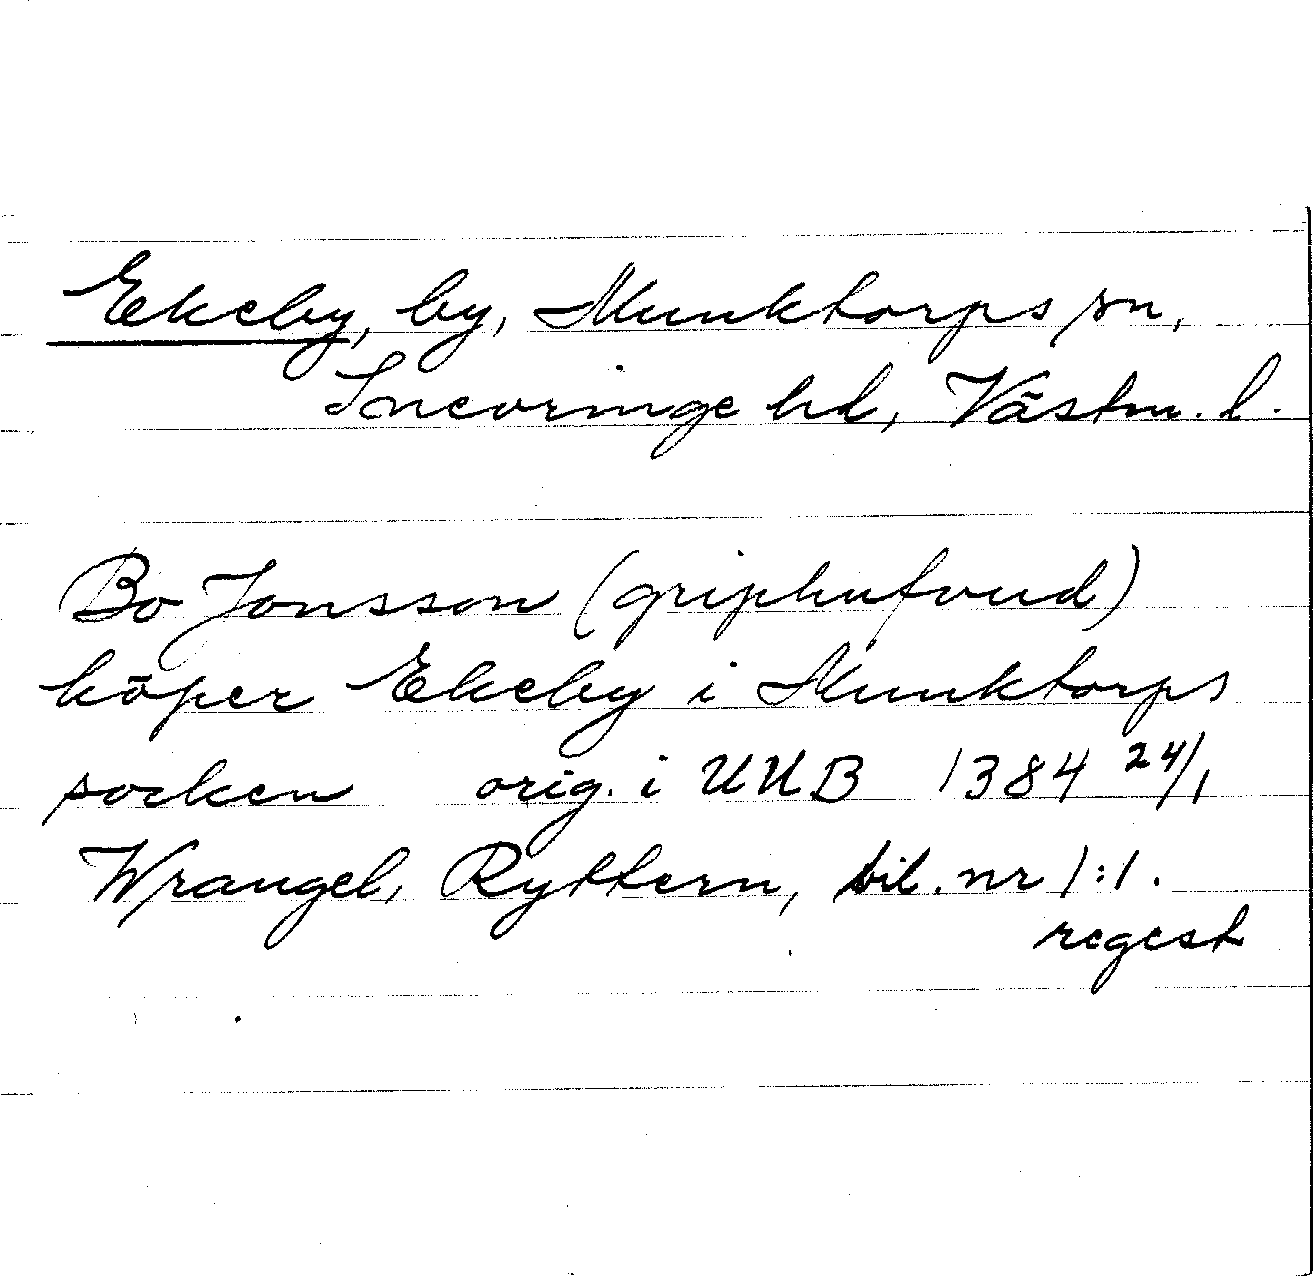 Ekeby, by, Munktorps sn,
Snevringe hd, Västm. l.
Bo Jonsson (griphufvud)
köper Ekeby i Munktorps
socken orig. i UUB 1384 24/1
Wrangel, Ryttern, bil. nr 1:1.
regest